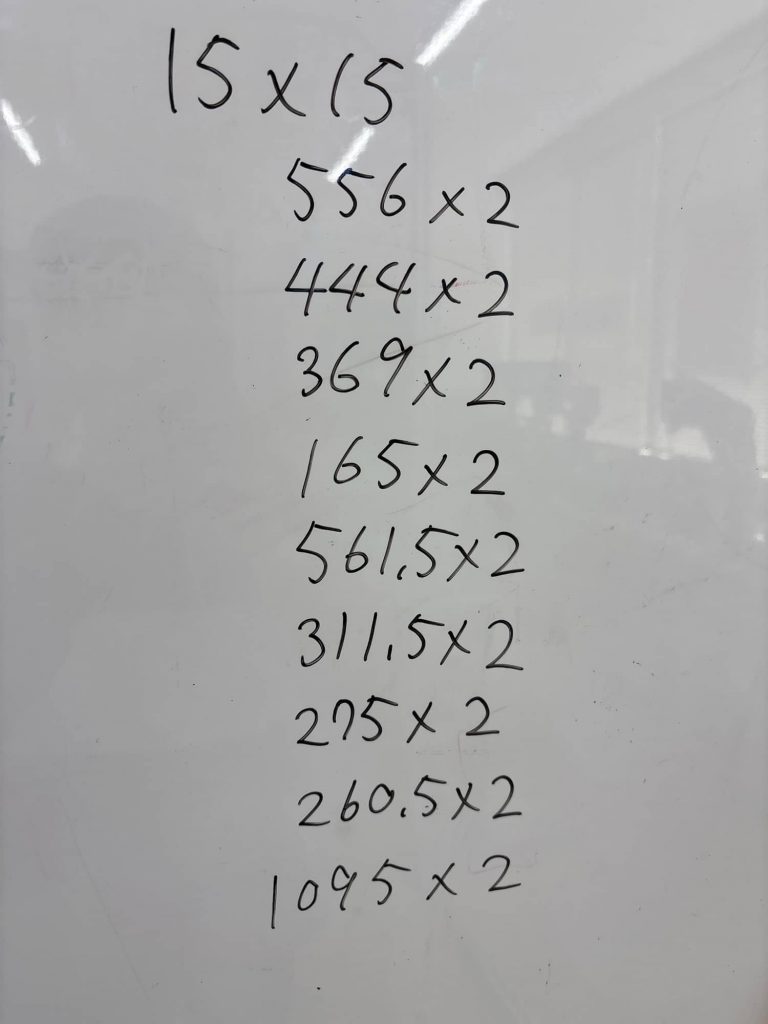 15×15
556×2
444×2
369×2
165×2
561.5×2
311.5×2
275×2
260.5×2
1095×2